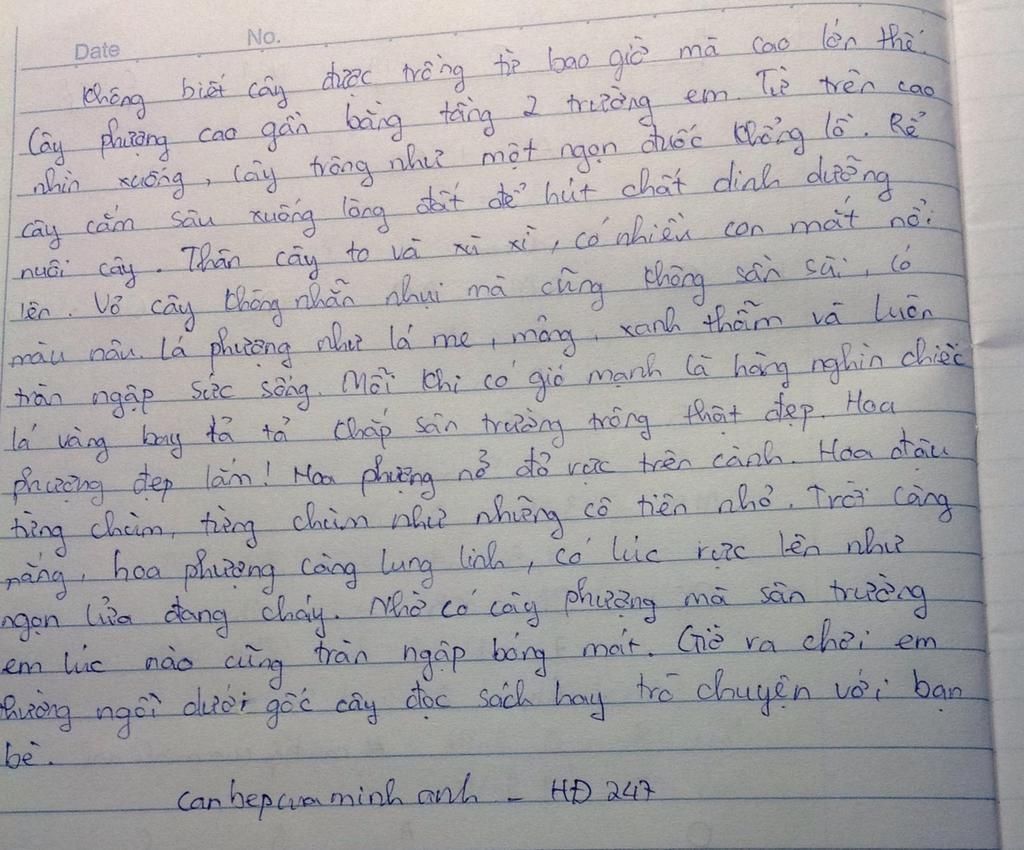 Date No.
Không biết cây được trồng từ bao giờ mà cao lớn thế.
Cây phượng cao gần bằng tầng 2 trường em. Từ trên cao
nhìn xuống, cây trông như một ngọn đuốc khổng lồ. Rễ
cây cắm sâu xuống lòng đất để hút chất dinh dưỡng
nuôi cây. Thân cây to và xù xì, có nhiều con mắt nổi
lên. Vỏ cây không nhẵn nhụi mà cũng không sần sùi, có
màu nâu. Lá phượng như lá me, mỏng, xanh thẫm và luôn
tràn ngập sức sống. Mỗi khi có gió mạnh là hàng nghìn chiếc
lá vàng bay tả tả khắp sân trường trông thật đẹp. Hoa
phượng đẹp lắm! Hoa phượng nở đỏ rực trên cành. Hoa đậu
từng chùm, từng chùm như những cô tiên nhỏ. Trời càng
nắng, hoa phượng càng lung linh, có lúc rực lên như
ngọn lửa đang cháy. Nhờ có cây phượng mà sân trường
em lúc nào cũng tràn ngập bóng mát. Giờ ra chơi em
thường ngồi dưới gốc cây đọc sách hay trò chuyện với bạn
bè.
canbepcuaminhanh - HĐ 247